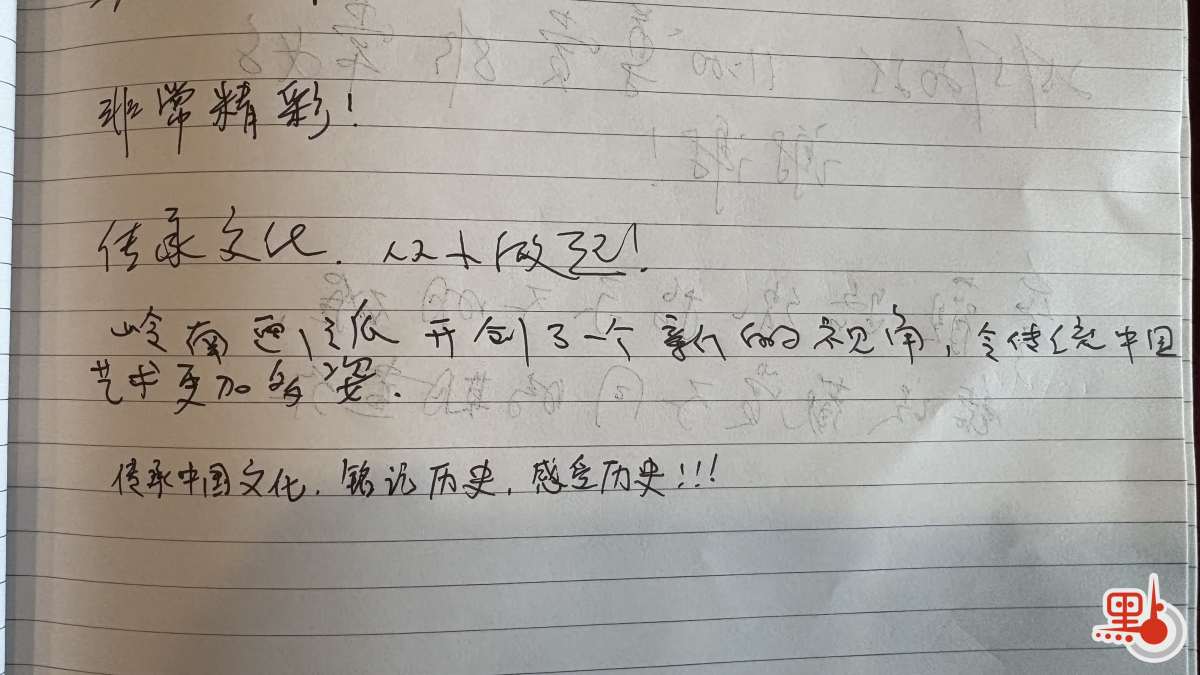 非常精彩！
传承文化．从小做起！
岭南画派 开创了一个新的视角，令传统中国
艺术更加多姿．
传承中国文化．铭记历史，感受历史！！！
點